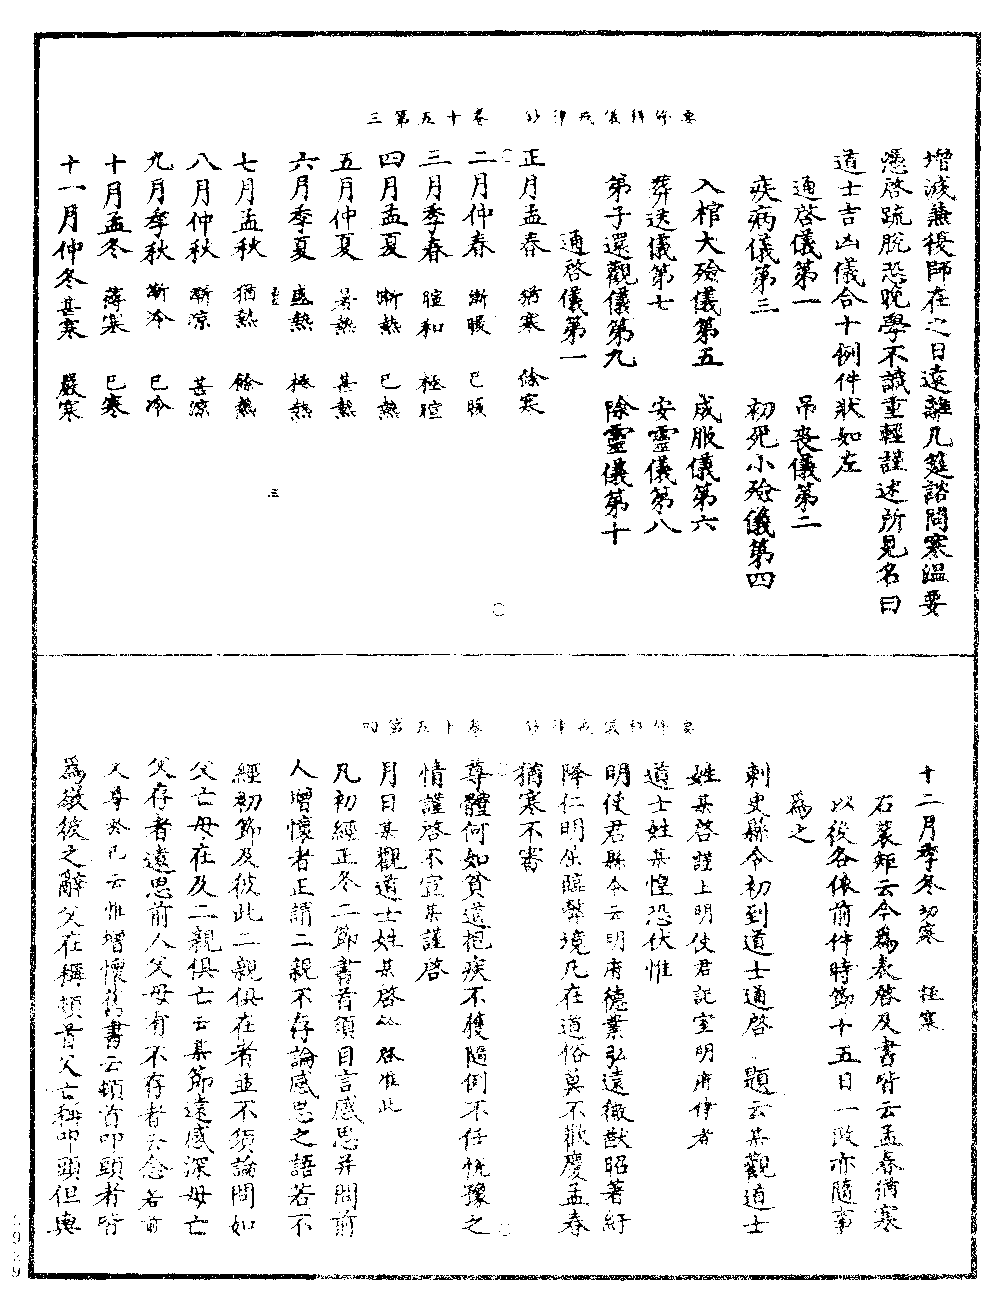 要修科儀戒律鈔　卷十五第三
增減兼複師在之日遠離凡筵諮問寒溫要
憑啓疏脫恐晚學不識重輕謹述所見名曰
道士吉凶儀合十例件狀如左
通啓儀第一　弔喪儀第二
疾病儀第三　初死小殮儀第四
入棺大殮儀第五　成服儀第六
葬送儀第七　安靈儀第八
弟子還觀儀第九　除靈儀第十
通啓儀第一
正月孟春　猶寒　餘寒
二月仲春　漸暖　已暖
三月季春　暄和　極暄
四月孟夏　漸熱　已熱
五月仲夏　暑熱　甚熱
六月季夏　盛熱　極熱
三
七月孟秋　猶熱　餘熱
八月仲秋　漸凉　甚凉
九月季秋　漸冷　已冷
十月孟冬　薄寒　已寒
十一月仲冬　甚寒　嚴寒
要修科儀戒律鈔　卷十五第四
十二月季冬　切寒　極寒
石裴矩云今爲表啓及書皆云孟春猶寒
以後各依前件時節十五日一改亦隨事
爲之
刺史縣令初到道士通啓　題云某觀道士
姓某啓謹上明使君記室明府侍者
道士姓某惶恐伏惟
明使君縣令云明府德業弘遠徽猷昭著紆
降仁明俯臨弊境凡在道俗莫不歡慶孟春
猶寒不審
尊體何如貧道抱疾不獲隨倒不任忻豫之
情謹啓不宣某謹啓
月日某觀道士姓某啓 啓准此
凡初經正冬二節書首須自言感思并問前
人增懷者正謂二親不存論感思之語若不
經初節及彼此二親俱在者並不須論問如
父亡母在及二親俱亡云某節遠感深母亡
父存者遠思前人父母有不存者云念若前
人尊於己云惟增懷舊書云頓首叩頭者皆
爲敬彼之辭父在稱頓首父亡稱叩頭但與